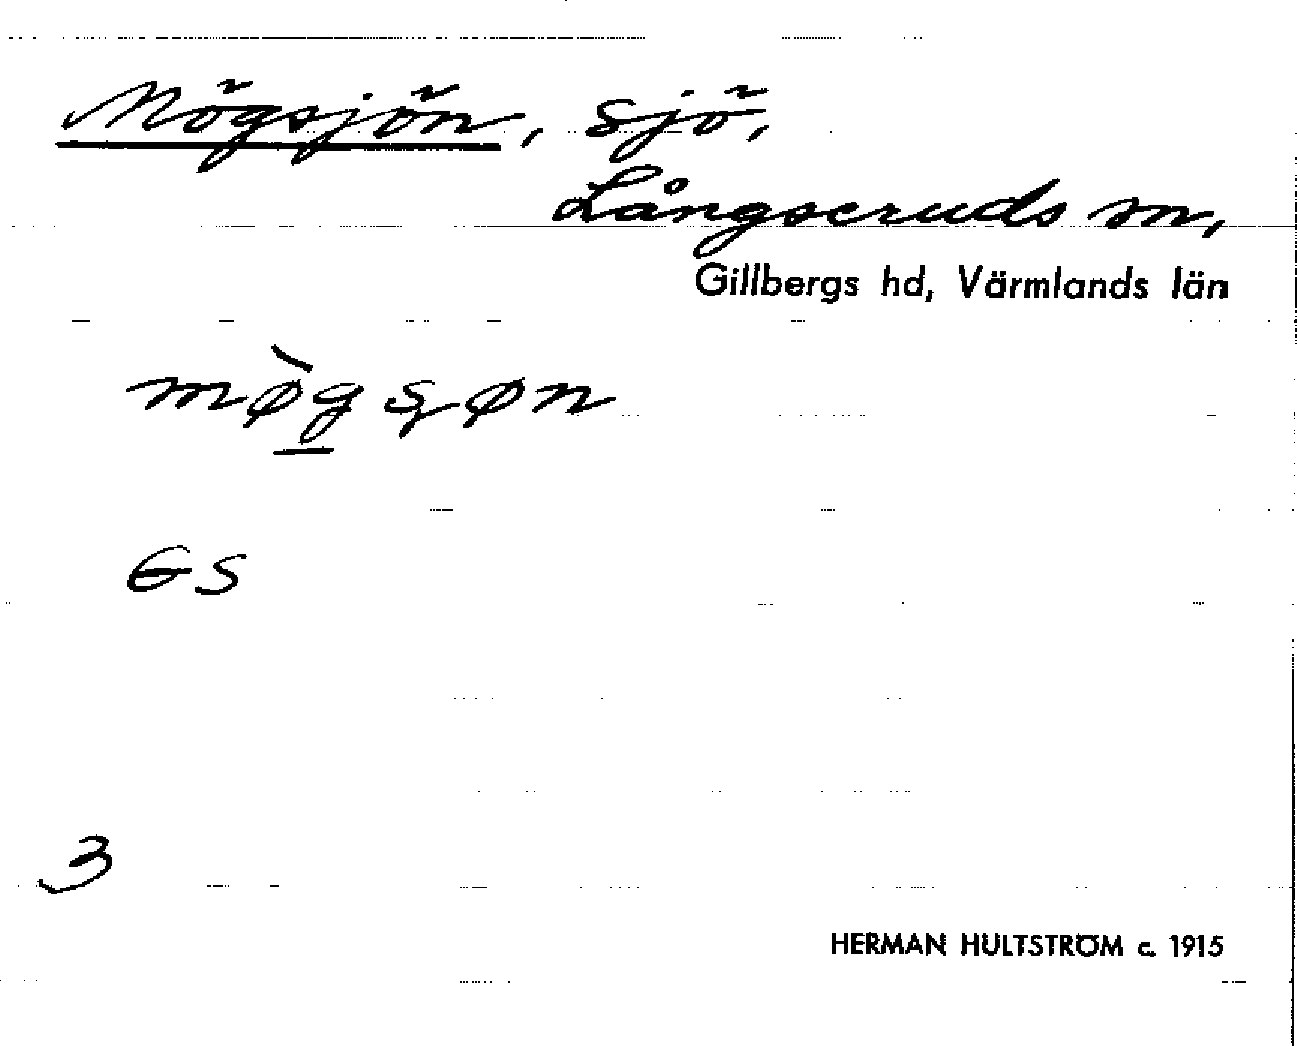 Mögsjön, sjö,
Långseruds sn,
Gillbergs hd, Värmlands län
mø̀g̱ sɟøn
GS
3
HERMAN HULTSTRÖM c. 1915